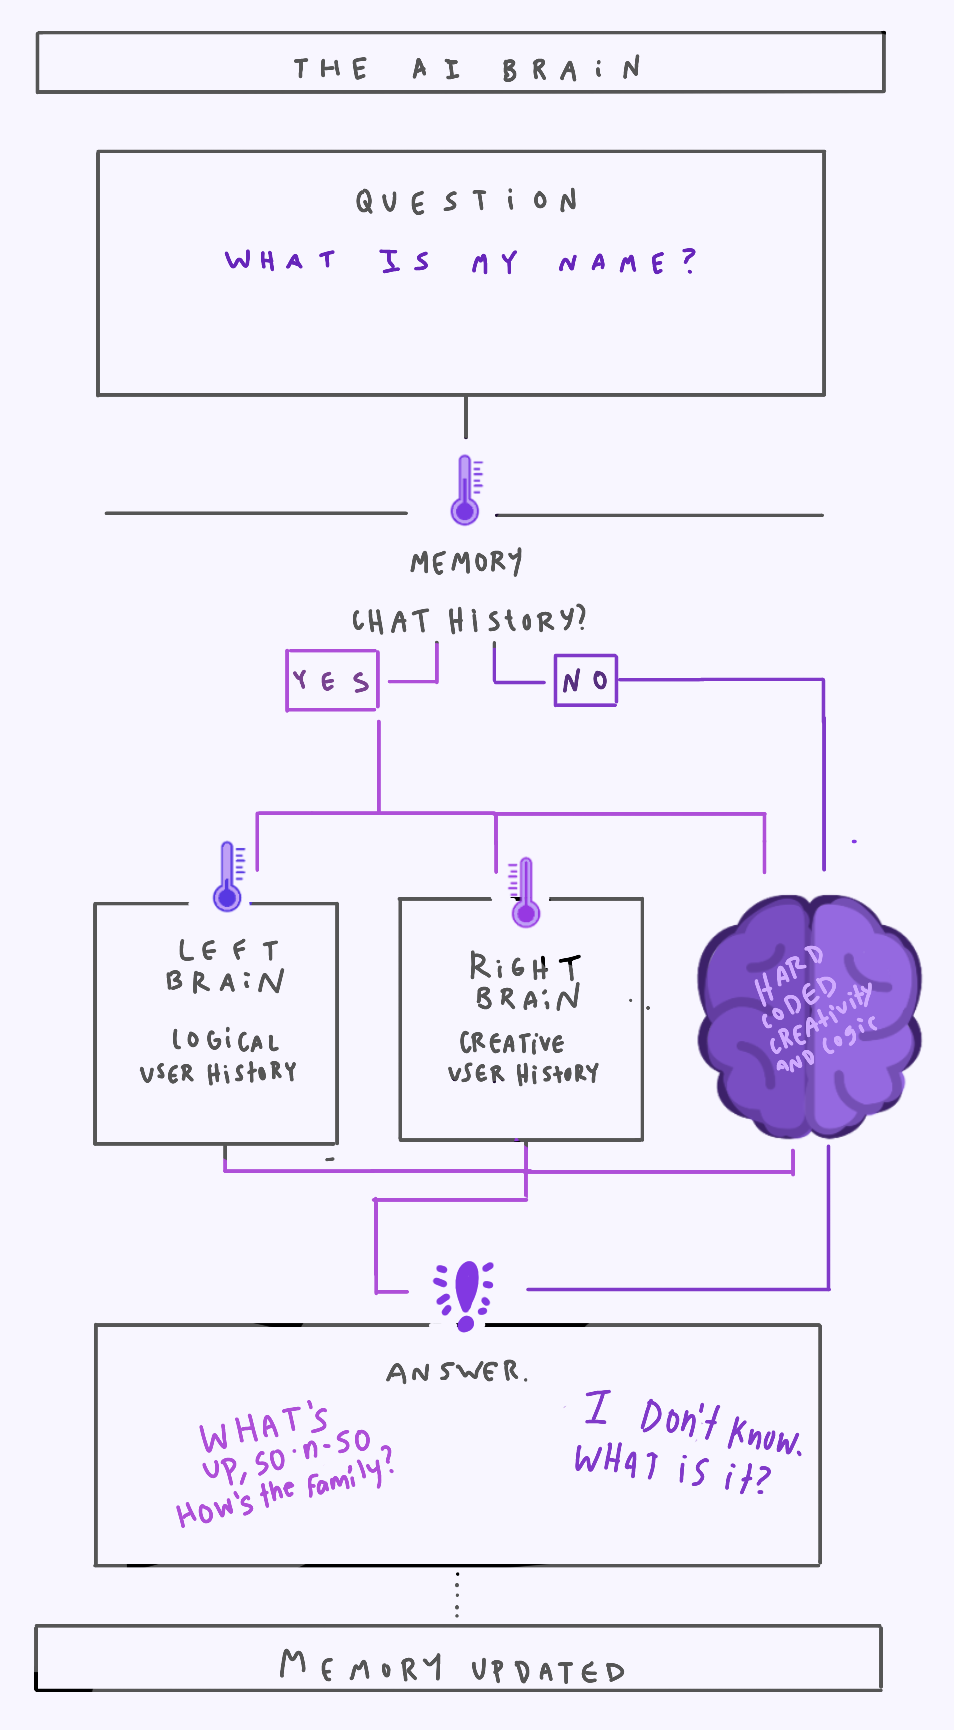 THE AI BRAIN
QUESTION
WHAT IS MY NAME?
MEMORY
CHAT HISTORY?
YES
NO
LEFT
BRAIN
LOGICAL
USER HISTORY
RIGHT
BRAIN
CREATIVE
USER HISTORY
HARD
CODED
CREATIVITY
AND LOGIC
ANSWER.
WHAT'S
UP, SO-N-SO
HOW'S the FAMILY?
I DON'T KNOW.
WHAT IS it?
MEMORY UPDATED